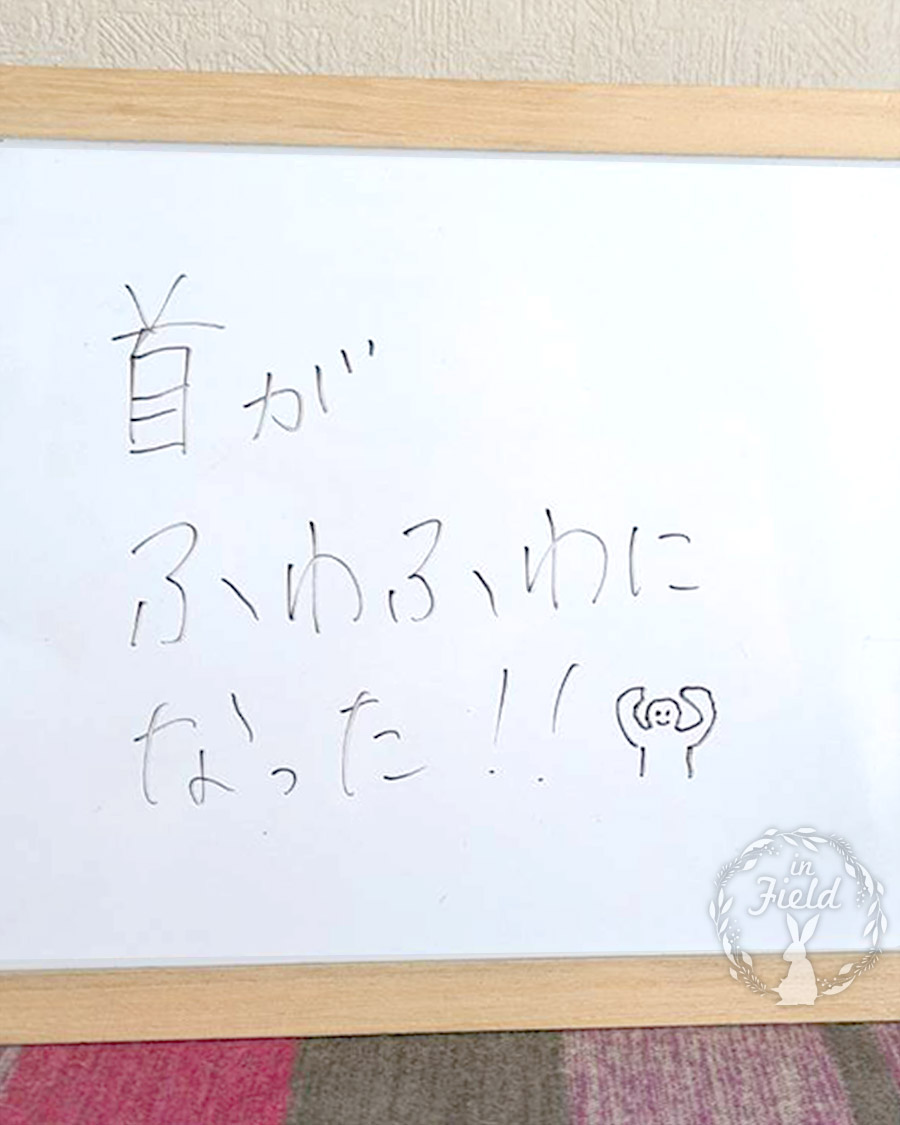 首が
ふわふわに
なった!!
in
Field